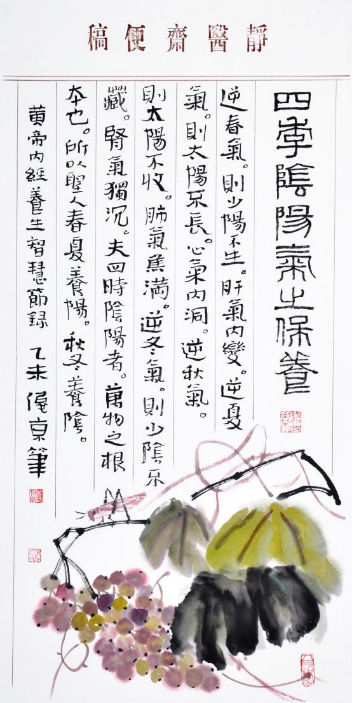 靜醫齋便稿
四季陰陽氣之保養
逆春氣。則少陽不生。肝氣內變。逆夏
氣。則太陽不長。心氣內洞。逆秋氣。
則太陽不收。肺氣焦満。逆冬氣。則少陰不
藏。腎氣獨沉。夫四時陰陽者。萬物之根
本也。所以聖人春夏養陽。秋冬養陰。
黃帝內經養生智慧節録 乙未 京筆